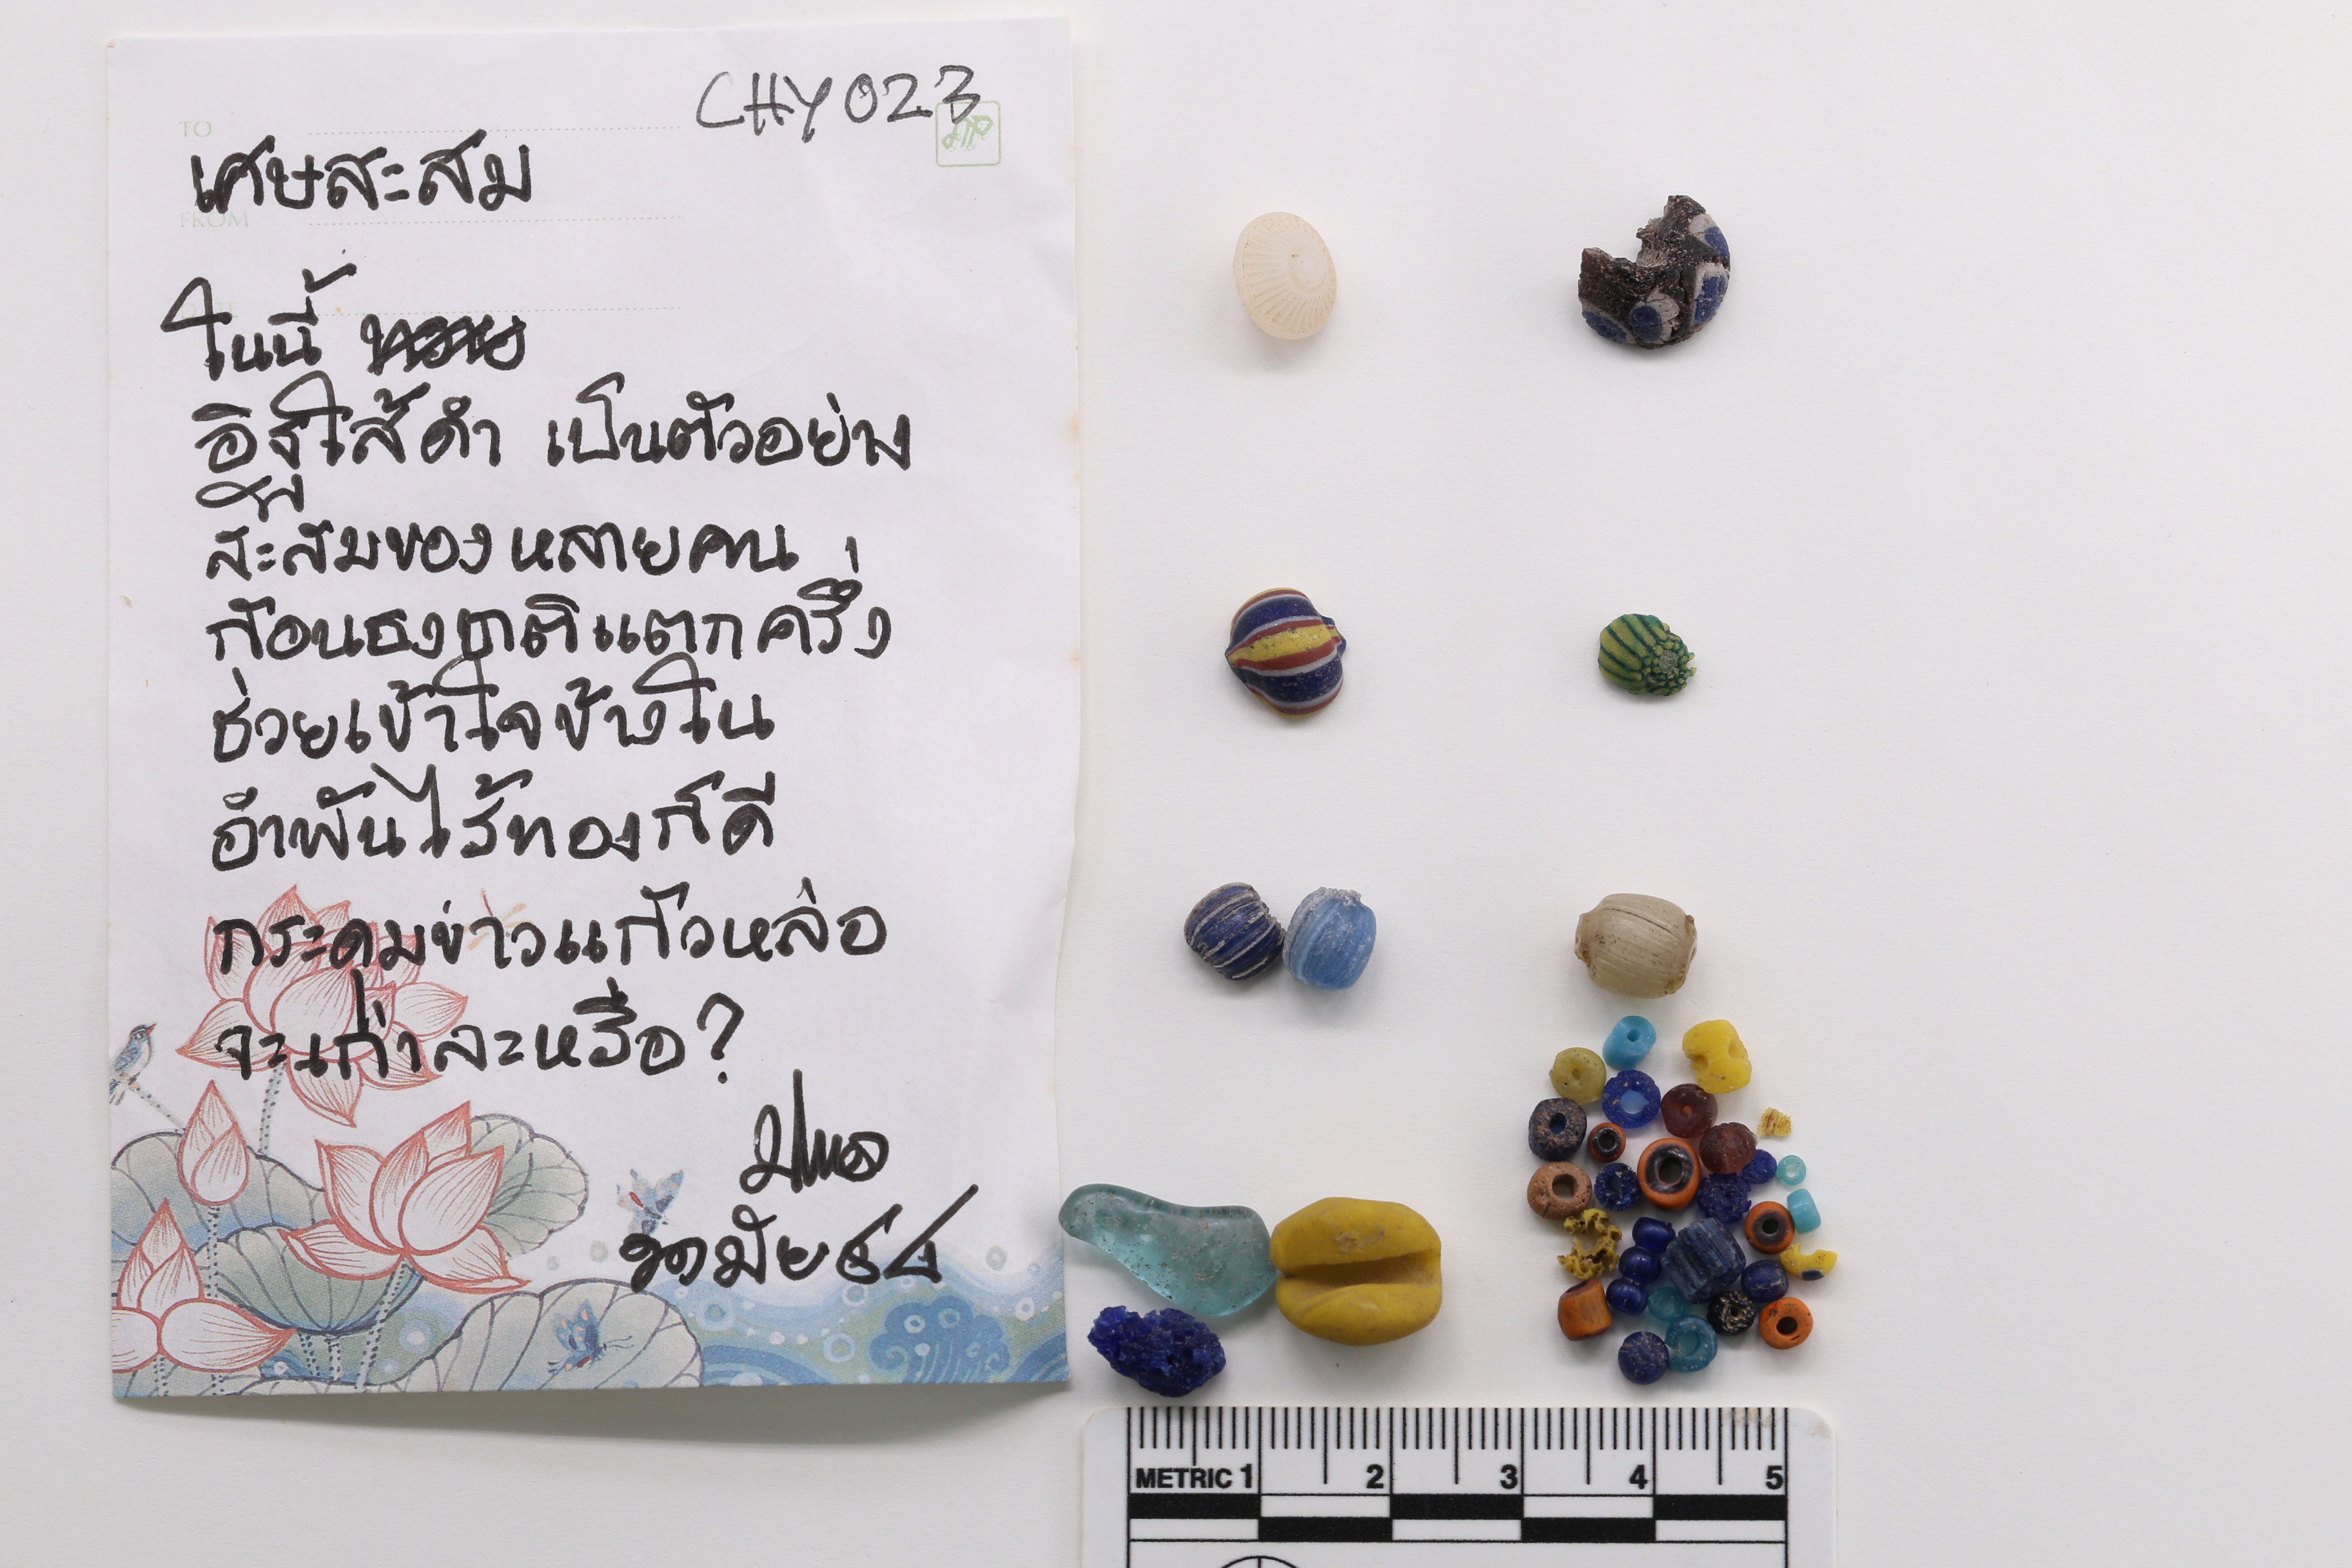 CHY023
TO
เศษสะสม
FROM
ในนี้
เป็นตัวอย่าง
สะสมของหลายคน
ก้อนธงชาติแตกครึ่ง
ช่วยเข้าใจข้างใน
อำพันไร้ทองก็ดี
กระดุมขาวแก้วหล่อ
จะเก่าละหรือ?
METRIC 1 2 3 4 5